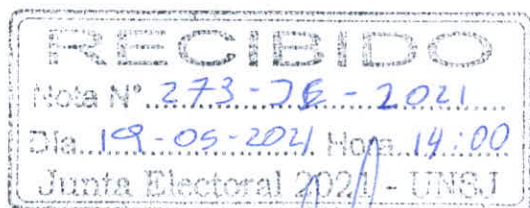 RECIBIDO
Nota N° 273-JE-2021
Día 19-05-2021 Hora 14:00
Junta Electoral 2021 - UNSJ